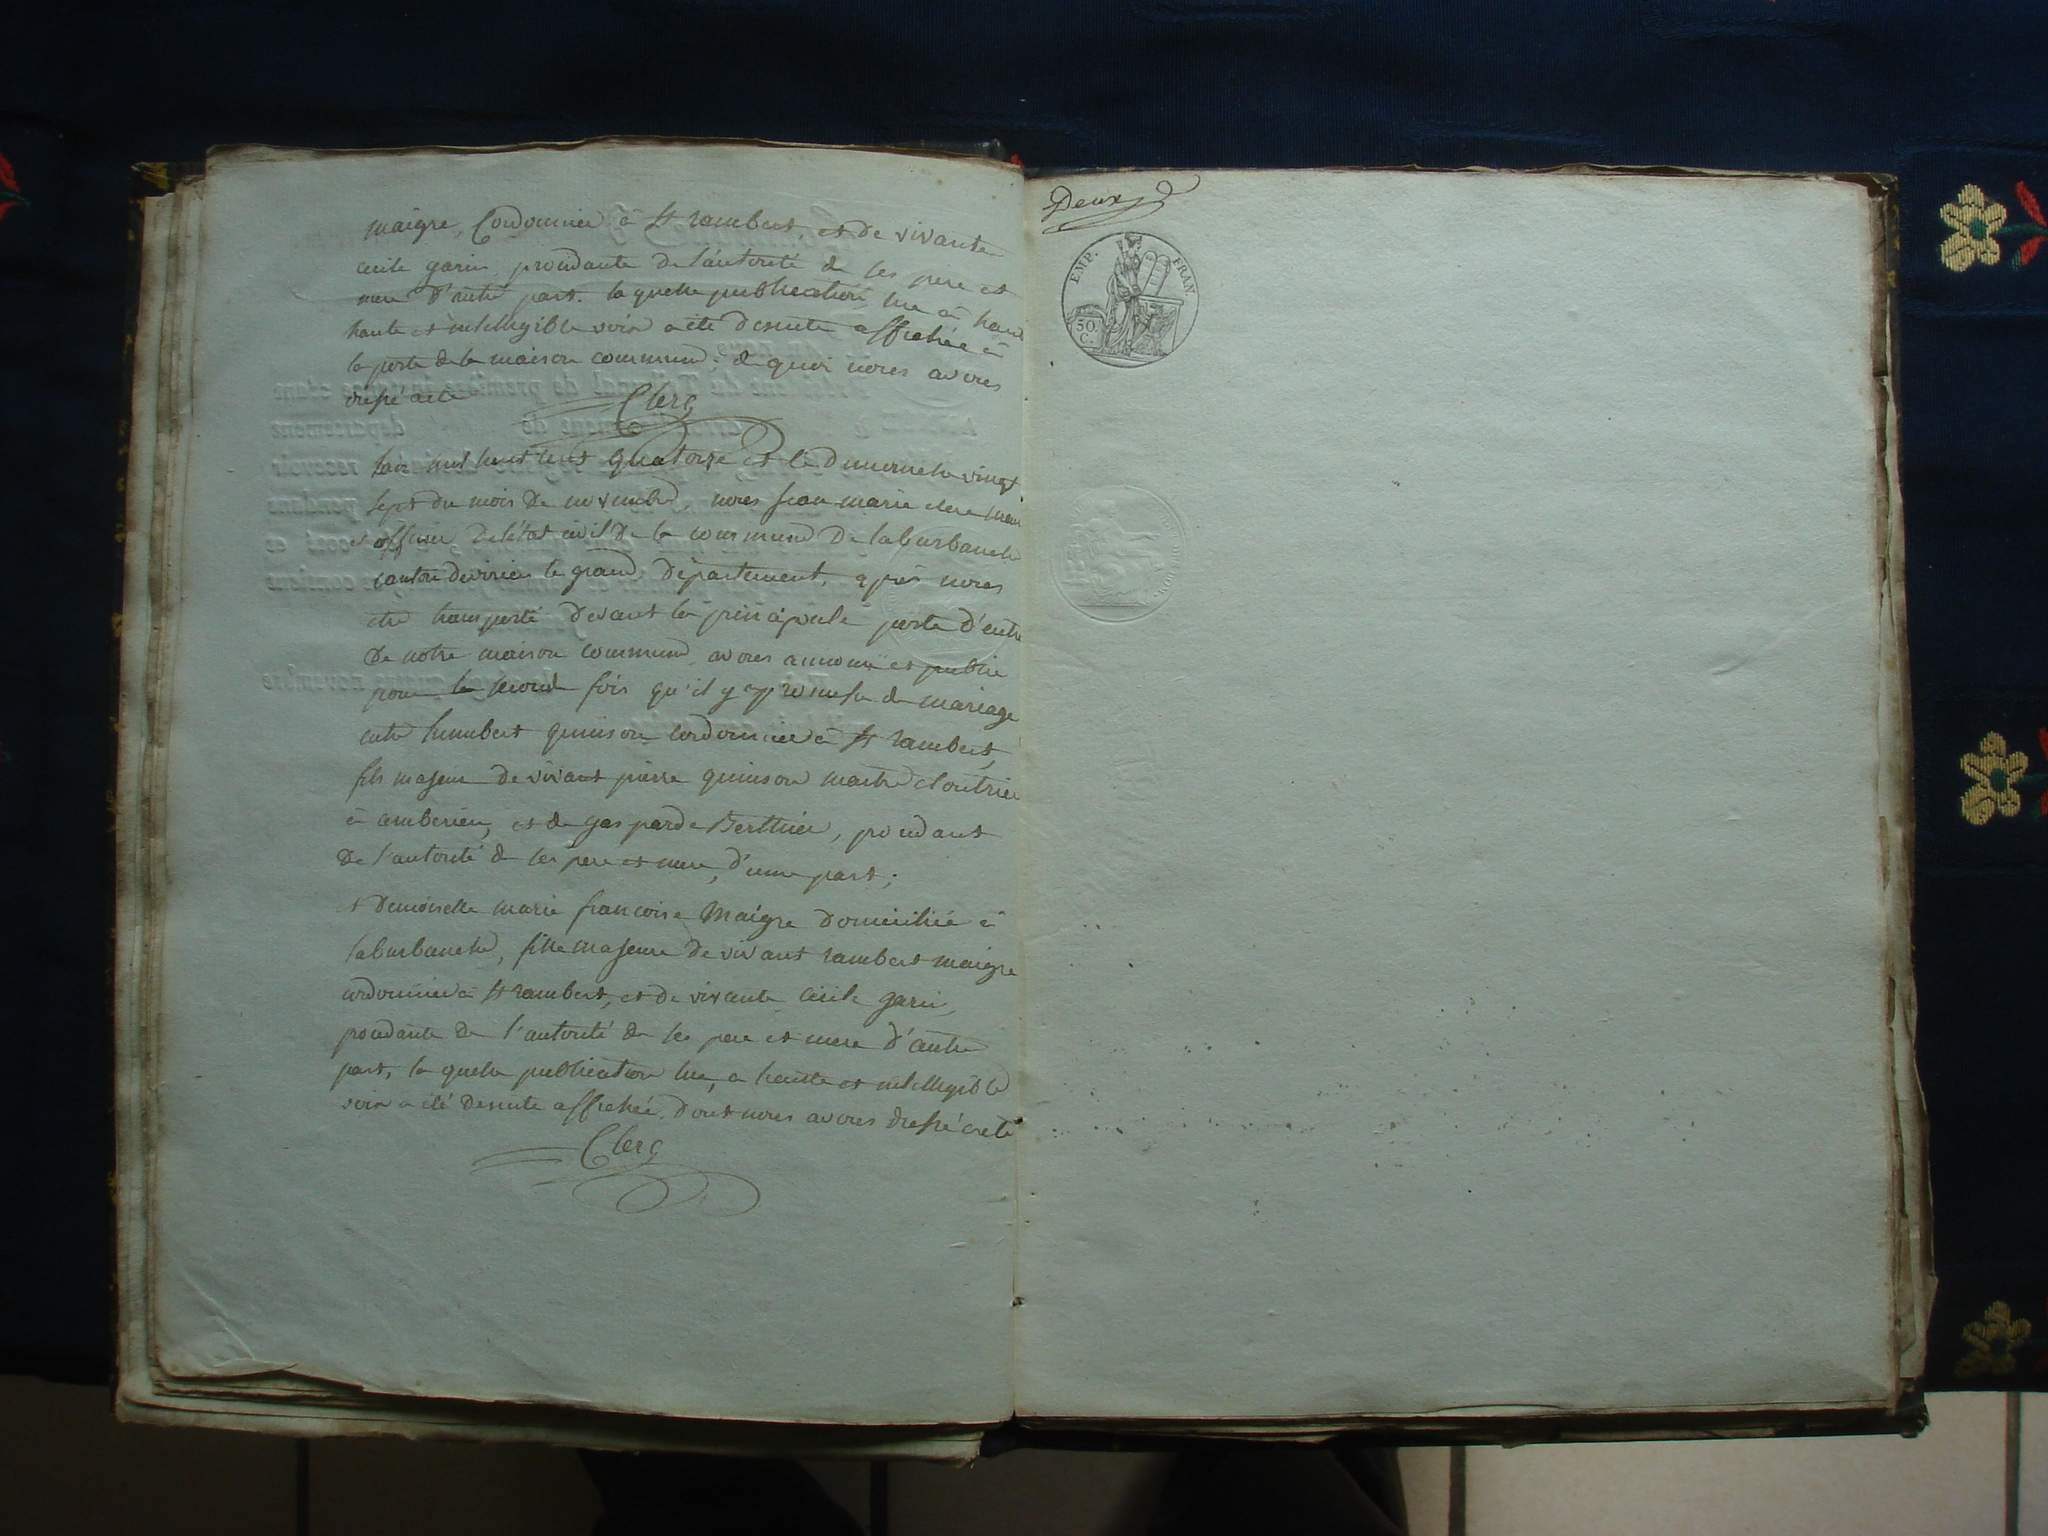 maigre, Cordonnier à St rambert, et de vivante
cecile garin, proudante de l'autorité de ses pere et
mere d'autre part. la quelle publication lue à haut
haute et intelligible voix a été desuite affichée à
la porte de la maison commune; de quoi nous avons
dressé acte
Clerc
L'an mil huit cent quatorze et le dimenche vingt
sept du mois de novembre, nous jean marie clerc maire
et officier de l'état civil de la commune de laburbanche
canton de virieu le grand, département, après nous
etre transporté devant la principale porte d'entré
de notre maison commune, avons annoncé et publié
pour la seconde fois qu'il y a promesse de mariage
entre humbert quinson cordonnier à St rambert,
fils majeur de vivant pierre quinson maitre cloutrier
à amberieu, et de gasparde Berthier, proudant
de l'autorité de ses pere et mere, d'une part;
et demoiselle marie francoise Maigre domiciliée à
laburbanche, fille majeure de vivant rambert maigre
cordonnier à St rambert, et de vivante cécile garin,
proudante de l'autorité de ses pere et mere d'autre
part, la quelle publication lue, a haute et intelligible
voix a été desuite affichée, dont nous avons dressé acte
Clerc
Deux
EMP. FRAN.
50.
C.